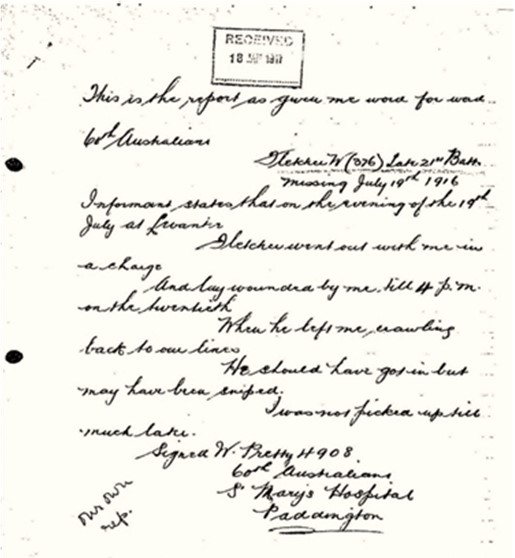 RECEIVED
18 1917
This is the report as given me word for word.
60th Australians
Fletcher W (376) Late 21st Batt.
missing July 19th 1916
Informant states that on the evening of the 19th
July at
Fletcher went out with me in
a charge
And lay wounded by me till 4 p.m.
on the twentieth
When he left me, crawling
back to our lines
He should have got in but
may have been sniped.
I was not picked up till
much later.
Signed W. Pretty 4908
60th Australians
St Mary's Hospital
Paddington
our own
rep.